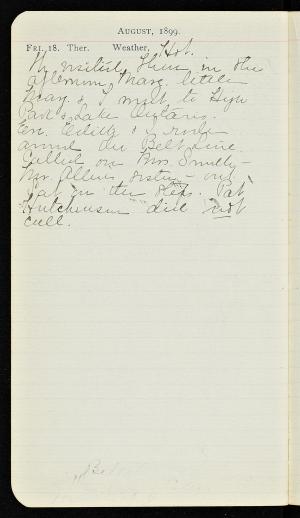 AUGUST, 1899.
FRI. 18. Ther. Weather, Hot.
We visited them in the
afternoon, Marg. little
Mary & I went to High
Park & Lake Ontario.
Ev. Edith & I rode
around the Belt Line.
Called on Mrs.
Mr. Allen's sister - out
sat on the steps. Pat
Hutchinson did not
call.